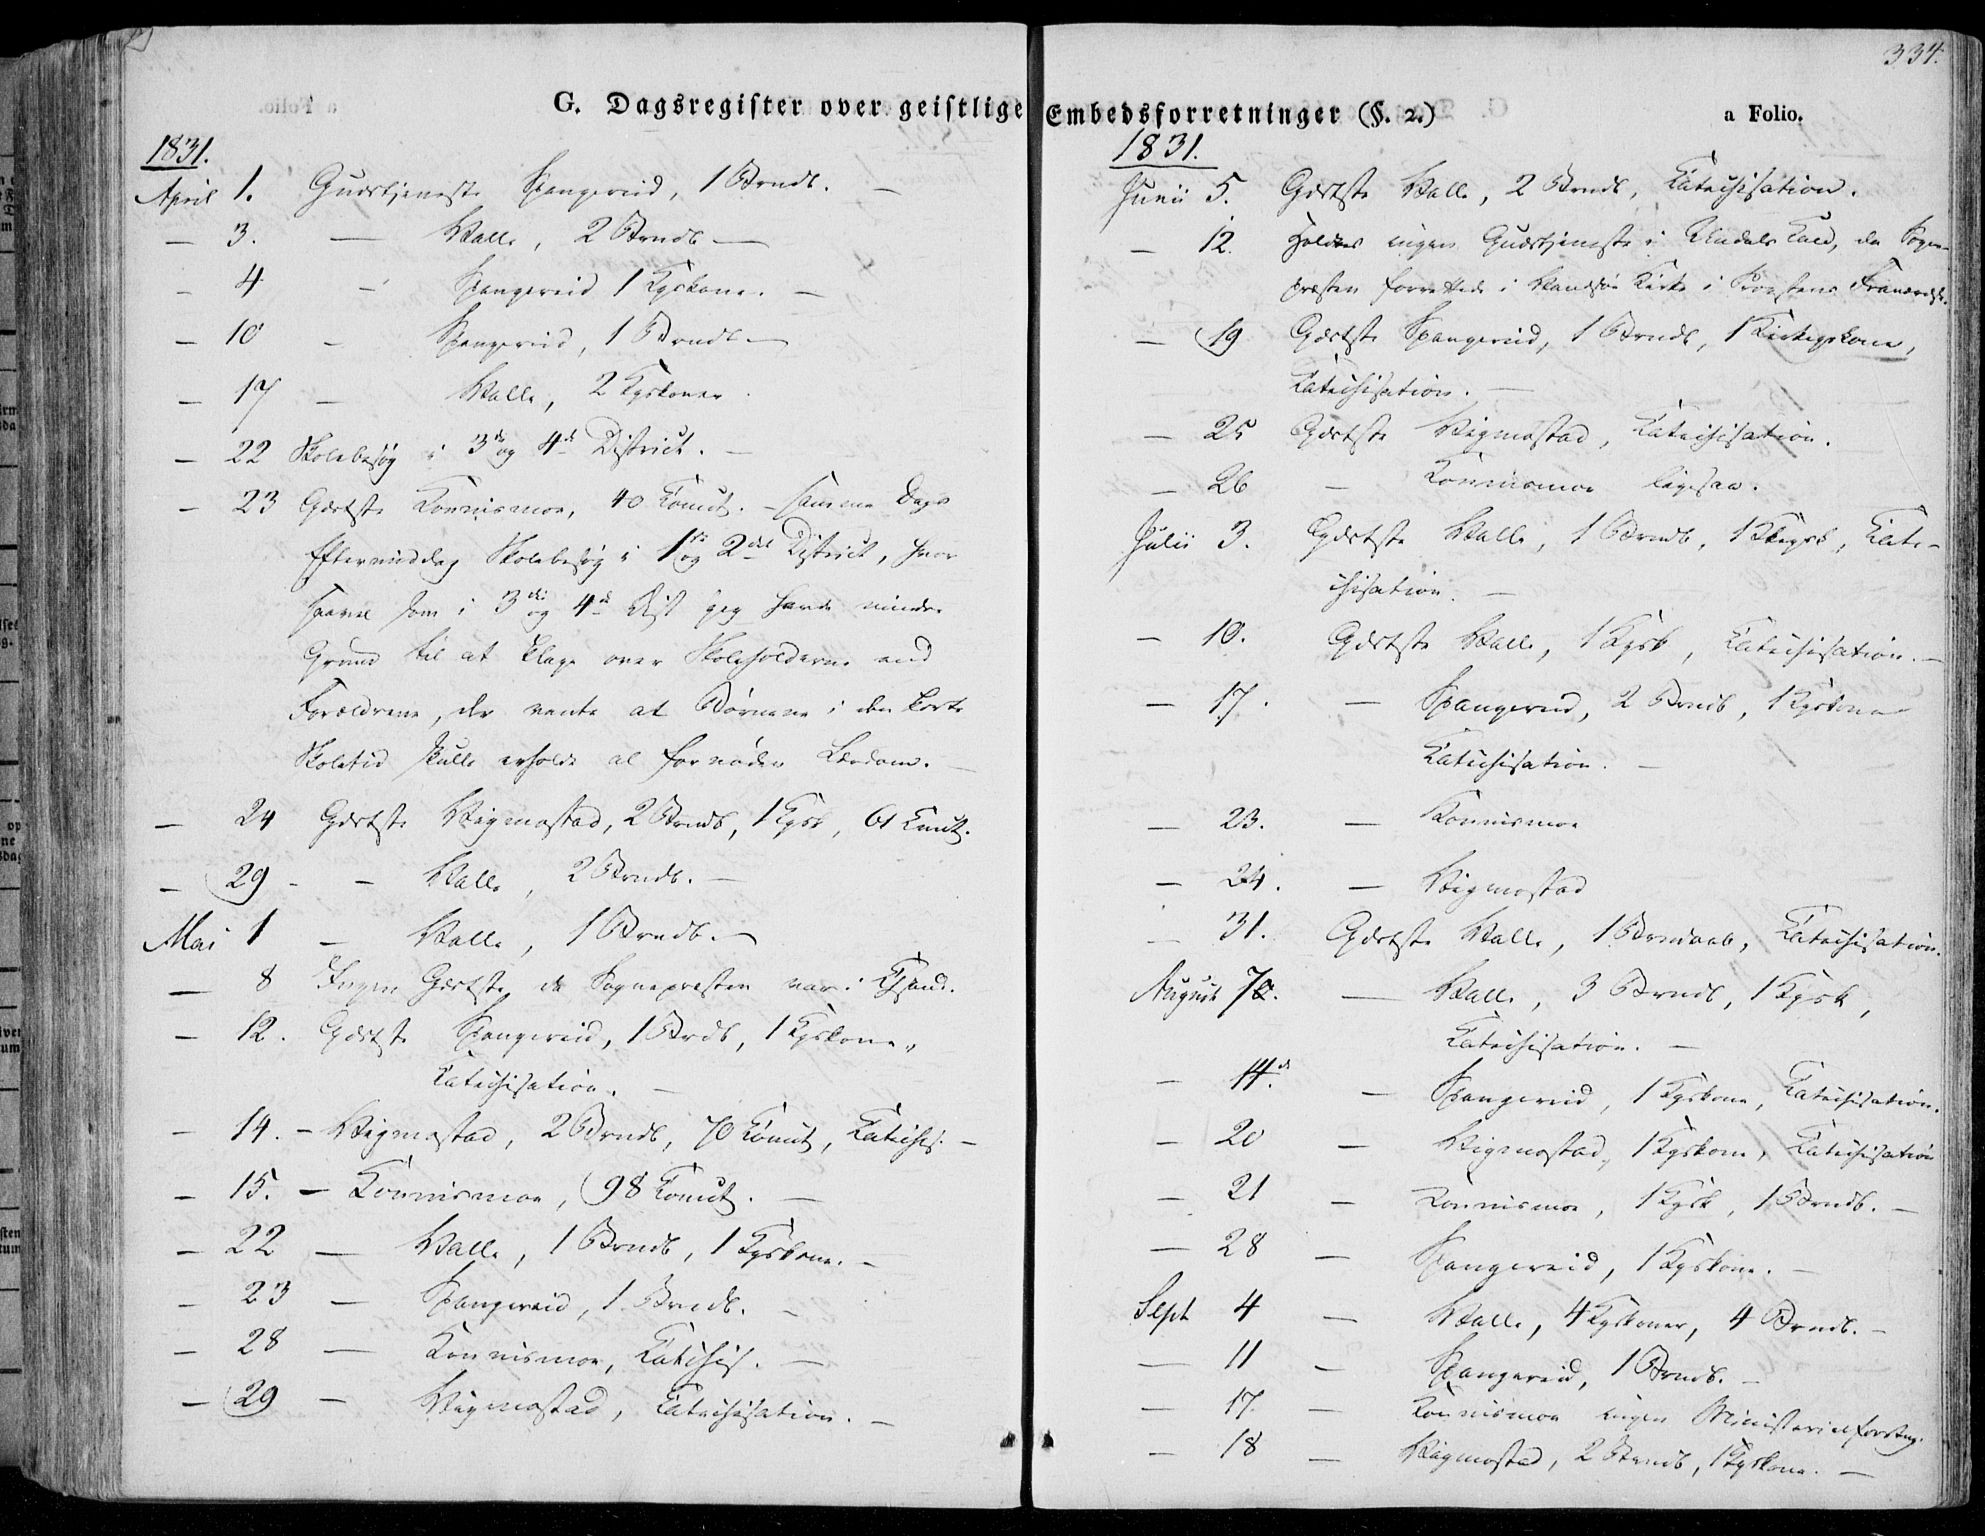 334.
G. Dagsregister over geistlige Embedsforretninger (§. 2.) a Folio.
1831.
April 1. Gudstjeneste Spangereid, 1 Brndb. —
— 3. — Valle, 2 Brndb —
— 4 — Spangereid 1 Kgskone. —
— 10 — Spangereid, 1 Brndb —
— 17 — Valle, 2 Kgskoner.
— 22 Skolebesøg i 3die og 4de District. —
— 23 Gdstste Konnismoe, 40 Comut. – samme Dags
Eftermiddag Skolebesøg i 1ste og 2det District, hvor
saavel som i 3die og 4de Dist jeg havde mindre
Grund til at klage over Skoleholderne end
Forældrene, der vente at Børnene i den korte
Skoletid skulle erholde al fornøden Lærdom. —
— 24 Gdstste Vigmostad, 2 Brndb, 1 Kgsk, 61 Cmut.
— 29 — Valle, 2 Brndb. —
Mai 1 — Valle, 1 Brndb. —
— 8 Ingen Gdstste da Sognepresten var i Chsand.
— 12. Gdstste Spangereid, 1 Brdb, 1 Kgskone,
Catechisation. —
— 14. – Vigmostad, 2 Brndb, 70 Comut, Catechis. —
— 15. – Konnismoe, 98 Comut. —
— 22 — Valle, 1 Brndb, 1 Kgskone. —
— 23 — Spangereid, 1 Brndb. —
— 28 — Konnismoe, Catechis. —
— 29 — Vigmostad, Catechisation. —
1831.
Junii 5. Gdstste Valle, 2 Brndb, Catechisation.
— 12. Holdes ingen Gudstjeneste i Undals Kald, da Sogne-
præsten forrettede i Kirke i Provstens
— 19 Gdstste Spangereid, 1 Brndb, 1 Kirkegskone,
Catechisation. —
— 25 Gdstste Vigmostad, Catechisation.
— 26 — Konnismoe ligesaa.
Julii 3. Gdstste Valle, 1 Brndb, 1 Kkgsk, Cate-
chisation. —
— 10. Gdstste Valle, 1 Kgsk, Catechisation. —
— 17. — Spangereid, 2 Brndb, 1 Kgskone
Catechisation. —
— 23. — Konnismoe
— 24. — Vigmostad
— 31. Gdstste Valle, 1 Brndaab, Catechisation.
August 7. — Valle, 3 Brndb, 1 Kgsk,
Catechisation. —
— 14.de — Spangereid, 1 Kgskone, Catechisation.
— 20 — Vigmostad, 1 Kgskone, Catechisation
— 21 — Konnismoe, 1 Kgsk, 1 Brndb. —
— 28 — Spangereid, 1 Kgskone. —
Sept 4 — Valle, 4 Kgskoner, 4 Brndb. —
— 11 — Spangereid, 1 Brndb. —
— 17 — Konnismoe ingen Ministerialforretng.
— 18 — Vigmostad, 2 Brndb, 1 Kgskone. —